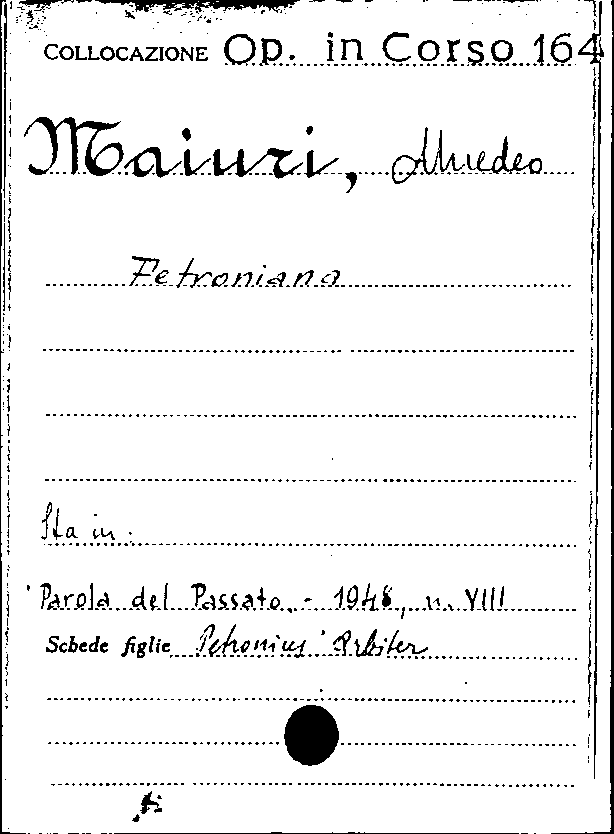 COLLOCAZIONE Op. in Corso 164
Maiuri, Amedeo
Petroniana
Sta in:
Parola del Passato. - 1948, n. VIII
Schede figlie Petronius Arbiter